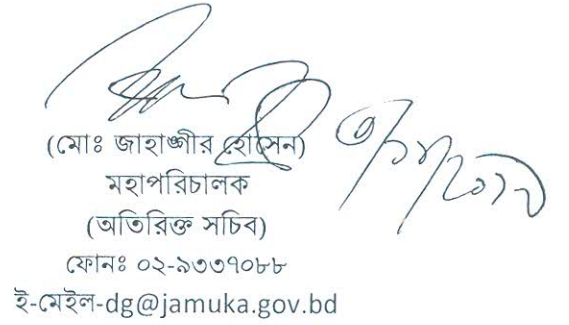 (মোঃ জাহাঙ্গীর হোসেন)
মহাপরিচালক
(অতিরিক্ত সচিব)
ফোনঃ ০২-৯৩৩৭০৮৮
ই-মেইল-dg@jamuka.gov.bd